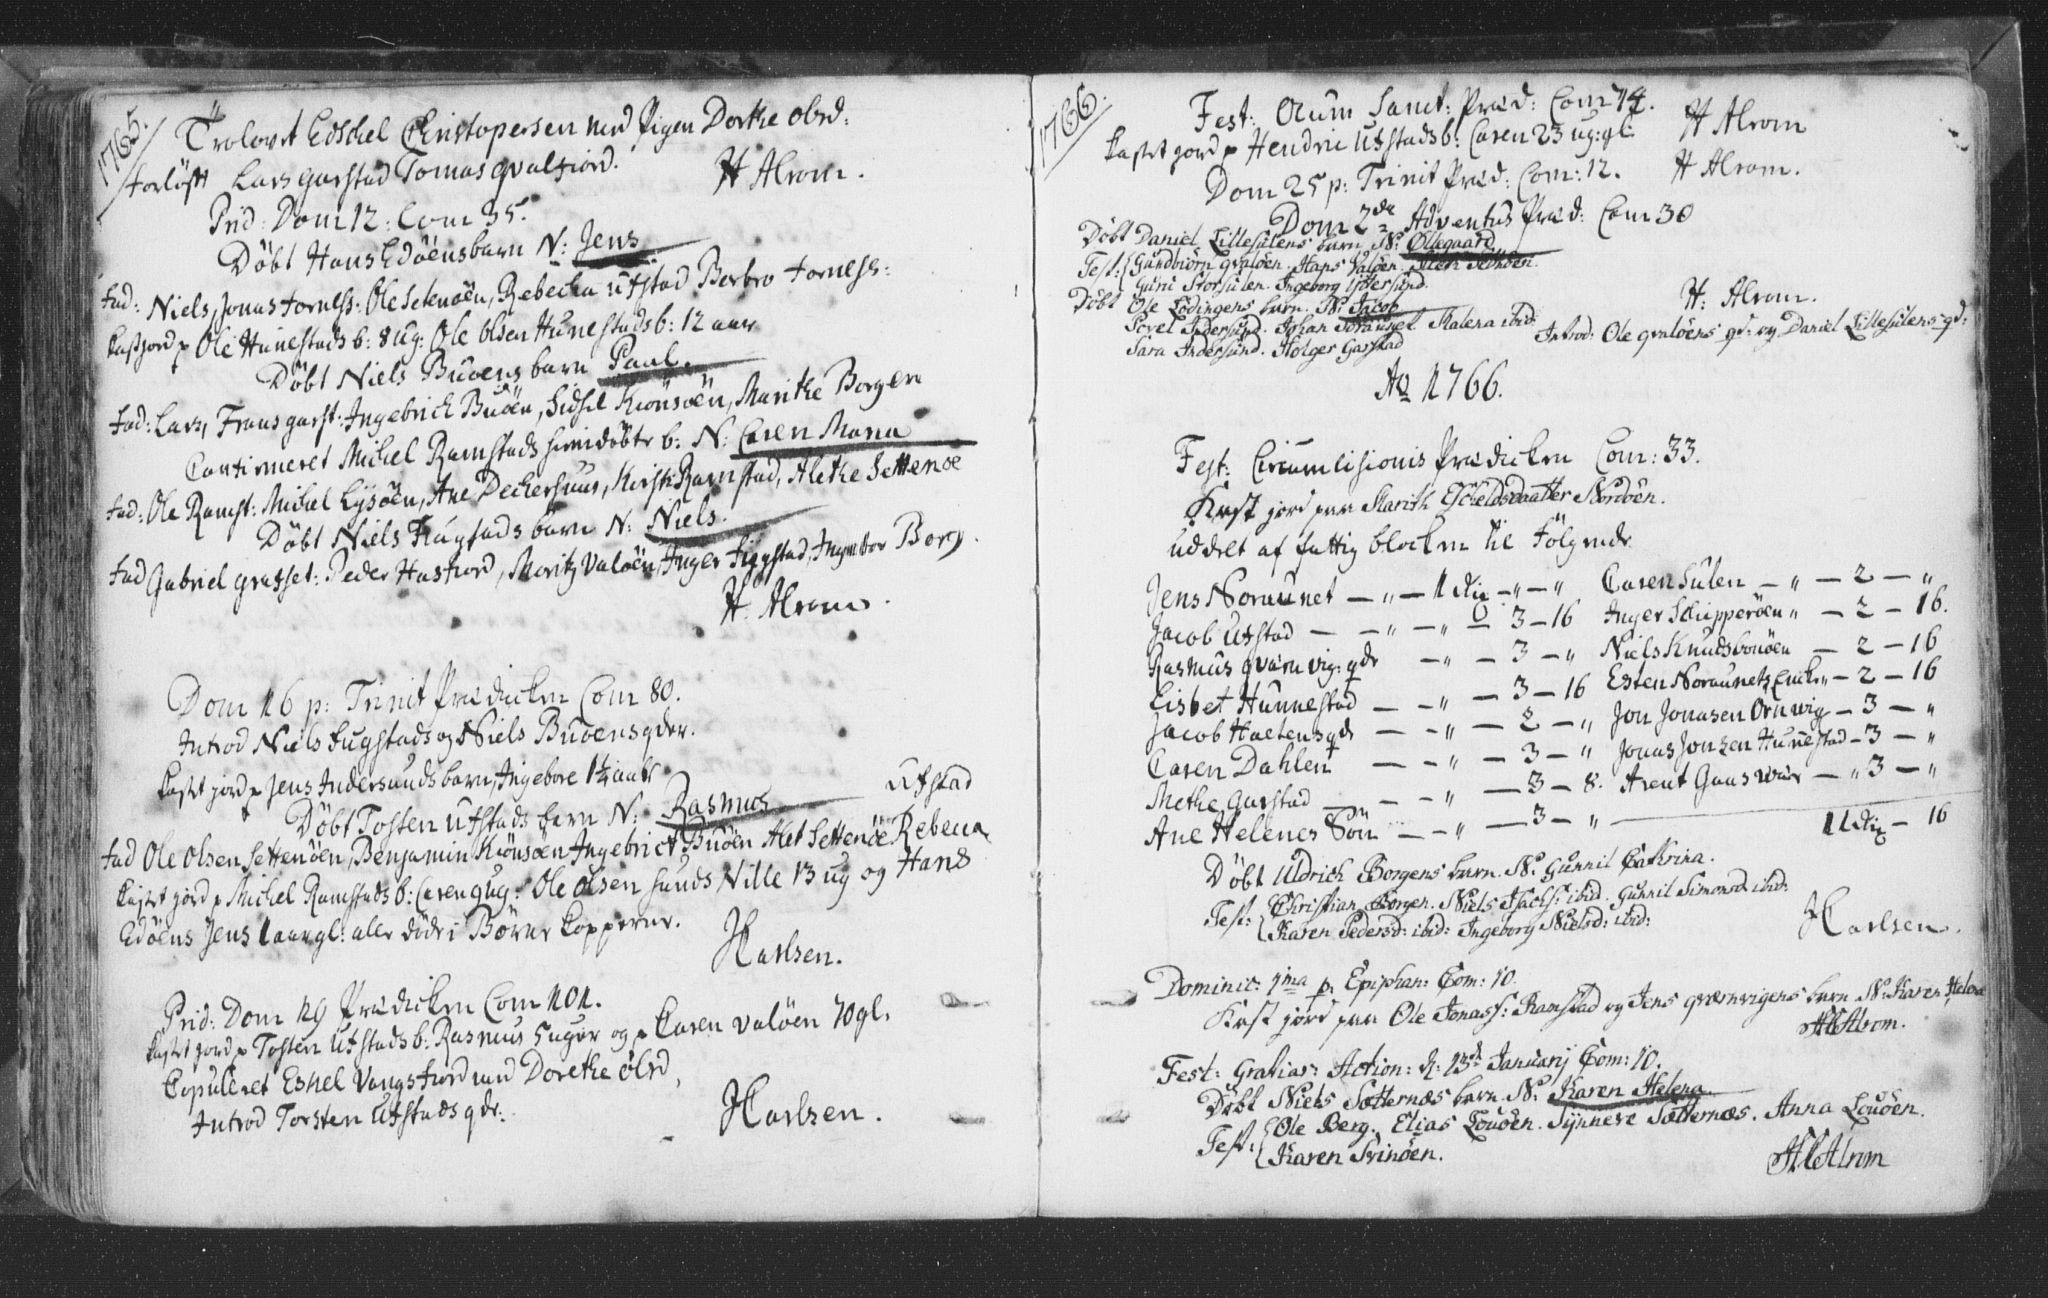 1765.
Trolovet Eschel Christopersen med Pigen Dorthe olsd:
forløfft Lars garstad Tomas qvalfiord.
H Alrom.
Prid: Dom 12: Com 35.
Døbt Hans Edøens barn N: Jens
fad: Niels, Jonas forness: Ole Setenøen, Rebecka utstad Berbro forness:
kastjord p Ole Hunestads b: 8 ug: Ole olsen Hunestads b: 12 aar
Døbt Niels Buøens barn Paul.
fad: Lars, Frans garst: Ingebrick Buøen, Sidsel Kiønsøen, Marithe Borgen
Confirmeret Michel Ramstads hiemdøbte b: N: Caren Maria
fad: Ole Ramst: Michel Lysøen, Ane Deckerhuus, Kirsti Ramstad, Alethe Settenøe
Døbt Niels Fugstads barn N: Niels.
fad Gabriel grasset: Peder Hasfiord, Moritz Valøen, Inger Figgstad, Ingebor Borg.
H. Alrom.
Dom 16 p: Trinit Prædicken Com 80.
Introd Niels fugstads og Niels Buøens qder.
kastet jord p Jens Indersunds barn Ingebore 1¼ aar
Døbt Tosten Utstads barn N: Rasmus
Utstad
fad Ole Olsen Settenøen, Benjamin Kiønsøen Ingebrict Buøen Alet Settenøe Rebecca
kastet jord p Michel Ramstads b: Caren 9 ug: Ole Olsen Sunds Nille 13 ug og Hans
Edøens Jens 1 aar gl: alle døde i Børne kopperne.
H Carlsen.
Prid: Dom 19 Prædicken Com 101.
kastet jord p Tosten Utstads b: Rasmus 5 uger og p Caren valøen 70 gl.
Copuleret Eskel Vangsfiord med Dorethe Olsd,
Introd Torsten Utstads qde:
H Carlsen.
1766.
Fest: Oium Sanct: Præd: Com 74.
H Alrom
kastet jord p Hendric Utstads b: Caren 23 ug: gl:
Dom 25 p: Trinit Præd: Com: 12.
H Alrom.
Dom 2de Adventus Præd: Com 30
Døbt Daniel Lillesulens barn N: Ollegaard
Test: Gundbiørn qvaløen. Hans Valøen.
Guru Storsulen. Ingeborg
Døbt Ole Lødingens barn. N: Jacob
H: Alrom.
Povel Indersund. Johan Noraunet Malena ibid:
Sara Indersund. Holger Garstad
Introd: Ole qvaløens qd: og Daniel Lillesulens qd:
Ao 1766.
Fest: Circumcisionis Prædicken Com: 33.
Kast jord paa Marith Escheldsdaatter Nordøen.
uddelt af fattig blocken til Følgende
Jens Noraunet — „ — 1 dlr — „ — „ Caren Sulen — „ — 2 — „
Jacob Utstad — — „ — „ — 3 — 16 Inger Skipperøen „ — 2 — 16.
Rasmus qværnvig: qde — „ — 3 — „ Niels Knudsen — 2 — 16
Lisbet Hunnestad — — „ — 3 — 16 Esten Noraunets Encke — 2 — 16
Jacob Haltens qde — — „ — 2 — „ Jon Jonasen Ørnwig — 3 — „
Caren Dahlen — — „ — 3 — „ Jonas Jonsen Hunestad — 3 — „
Methe Garstad — — „ — 3 — 8. Arent Gaaswær — „ 3 — „
Ane Helenes Søn — — „ — 3 — „
11 dlr — 16
Døbt Uldrich Borgens barn. N: Gunnil Cathrina.
Test: Christian Borgen. Niels Isachs: ibid. Gunnil Simonsd: ibid:
Karen Pedersd: ibid: Ingeborg Nielsd: ibid:
H Carlsen.
Dominic: 1ma p. Epiphan: Com: 10.
Kast jord paa Ole Jonass: Ramstad og Jens qværnvigens barn N: Karen Helena
H Alrom.
Fest: Gratiar: Action: d: 13de Januarij Com: 10.
Døbt Niels Sætternæs barn N: Karen Helena
Test: Ole Berg. Elias Louøen. Synneve Sætternæs. Anna Louøen.
Karen Svinøen.
H Alrom